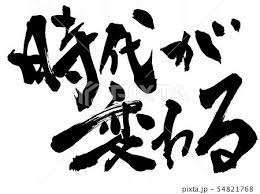 時代が
変わる
pixta.jp - 54821768